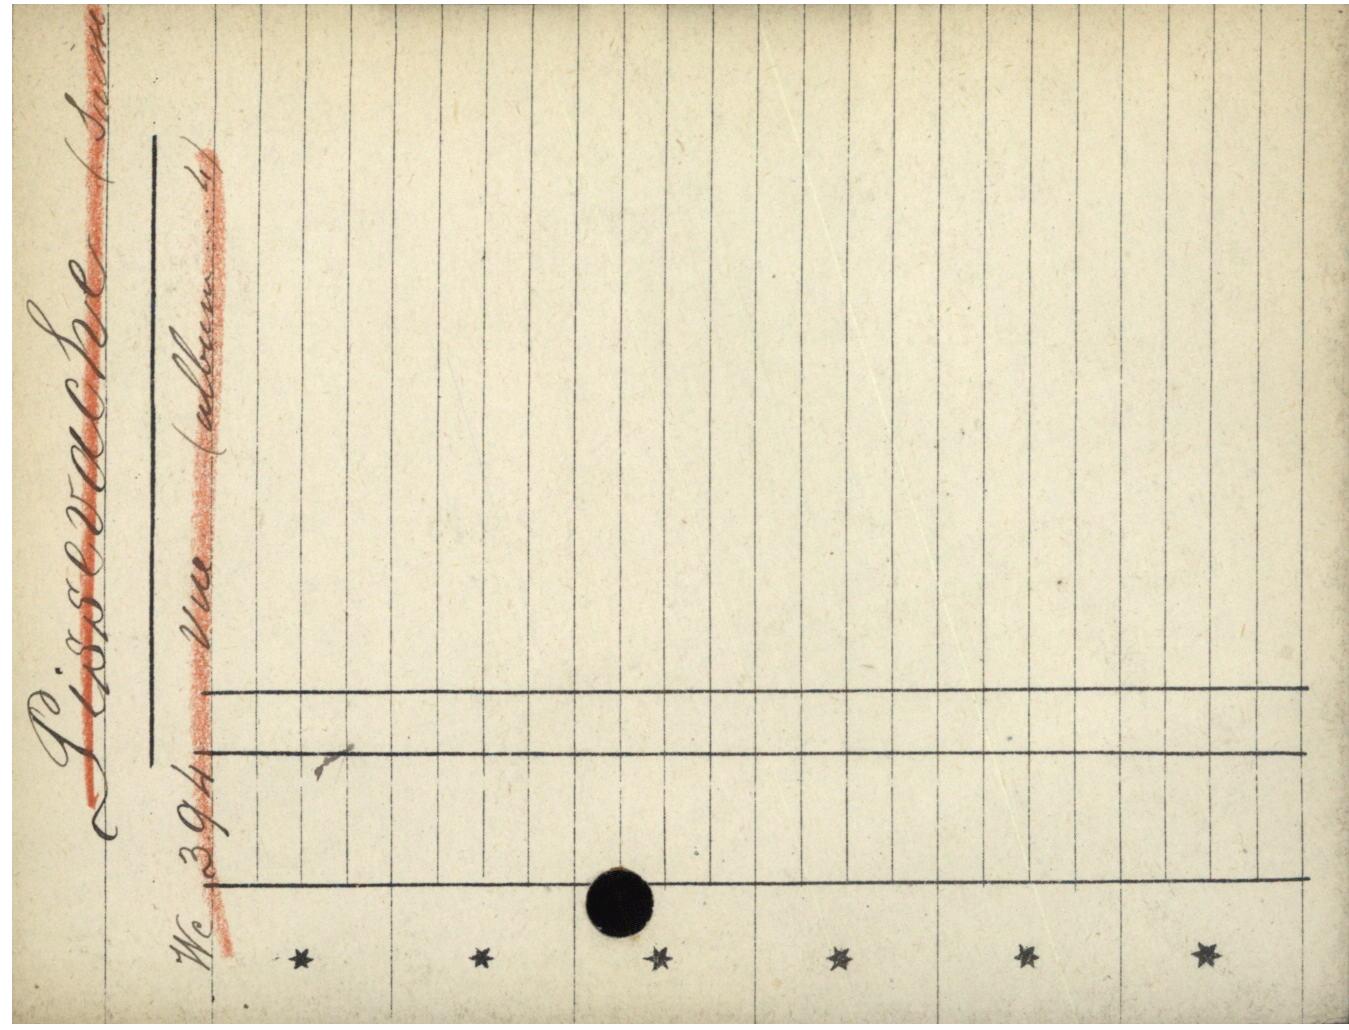 Pissevache (Suisse
We 394 Vue (album 4)